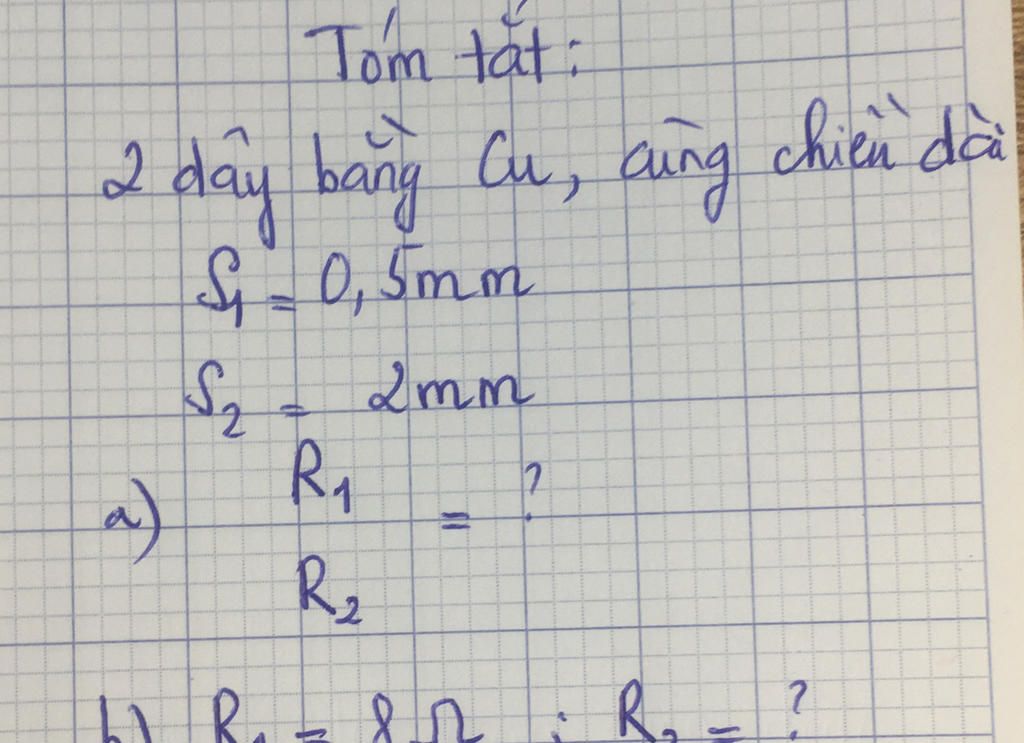 Tóm tắt:
2 dây bằng Cu, cùng chiều dài
S1 = 0,5mm
S2 = 2mm
a) R1
= ?
R2
b) R1 = 8 Ω ; R2 = ?